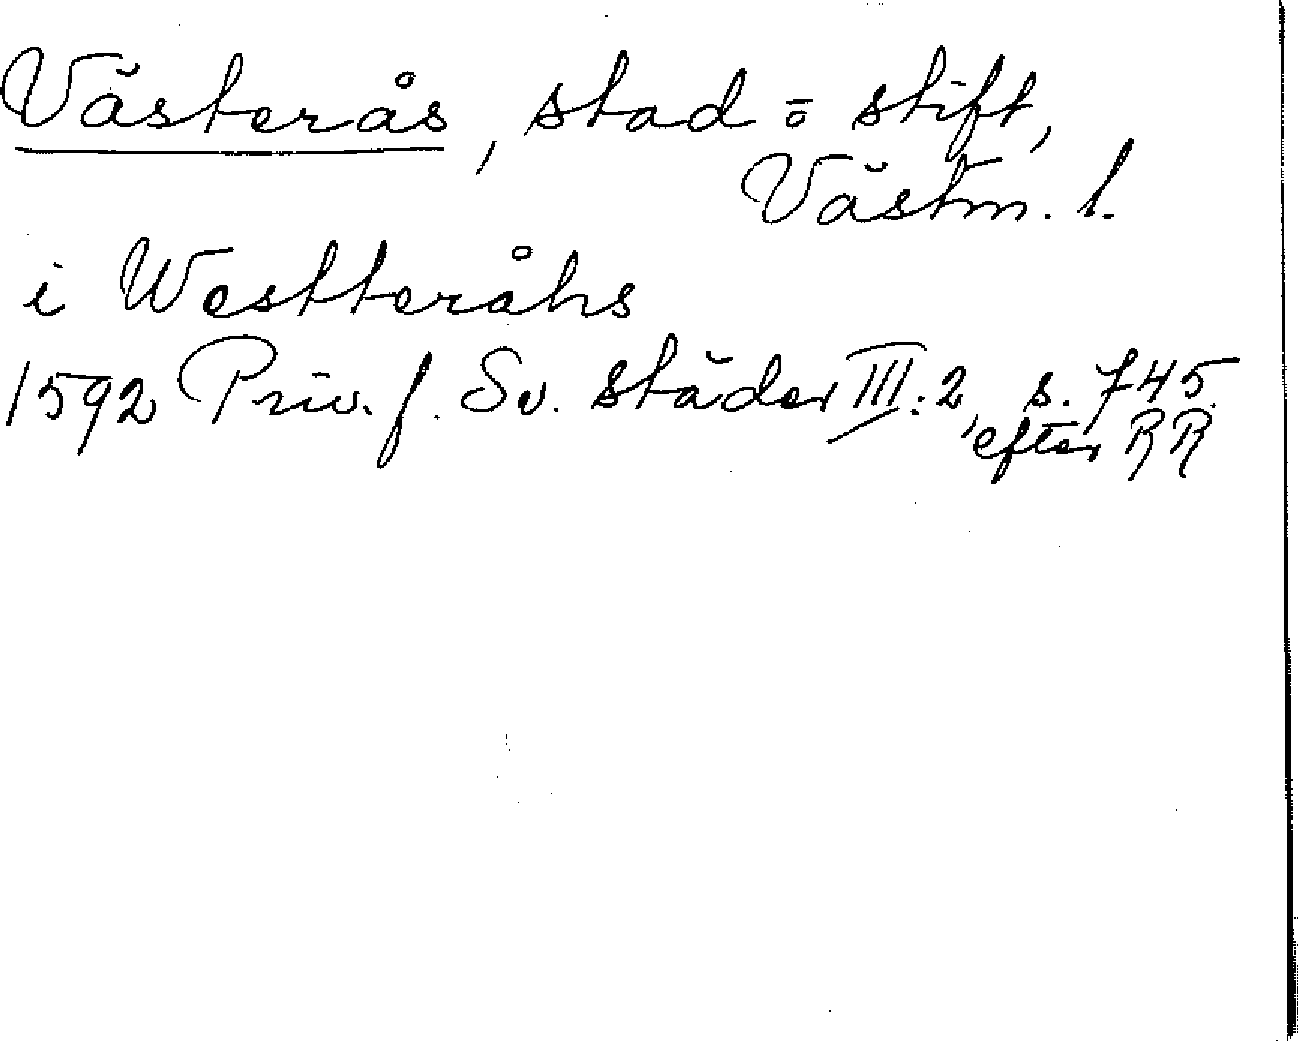 Västerås, stad o stift,
Västm. l.
i Westteråhs
1592 Priv. f. Sv. städer III:2, s. 745.
efter RR